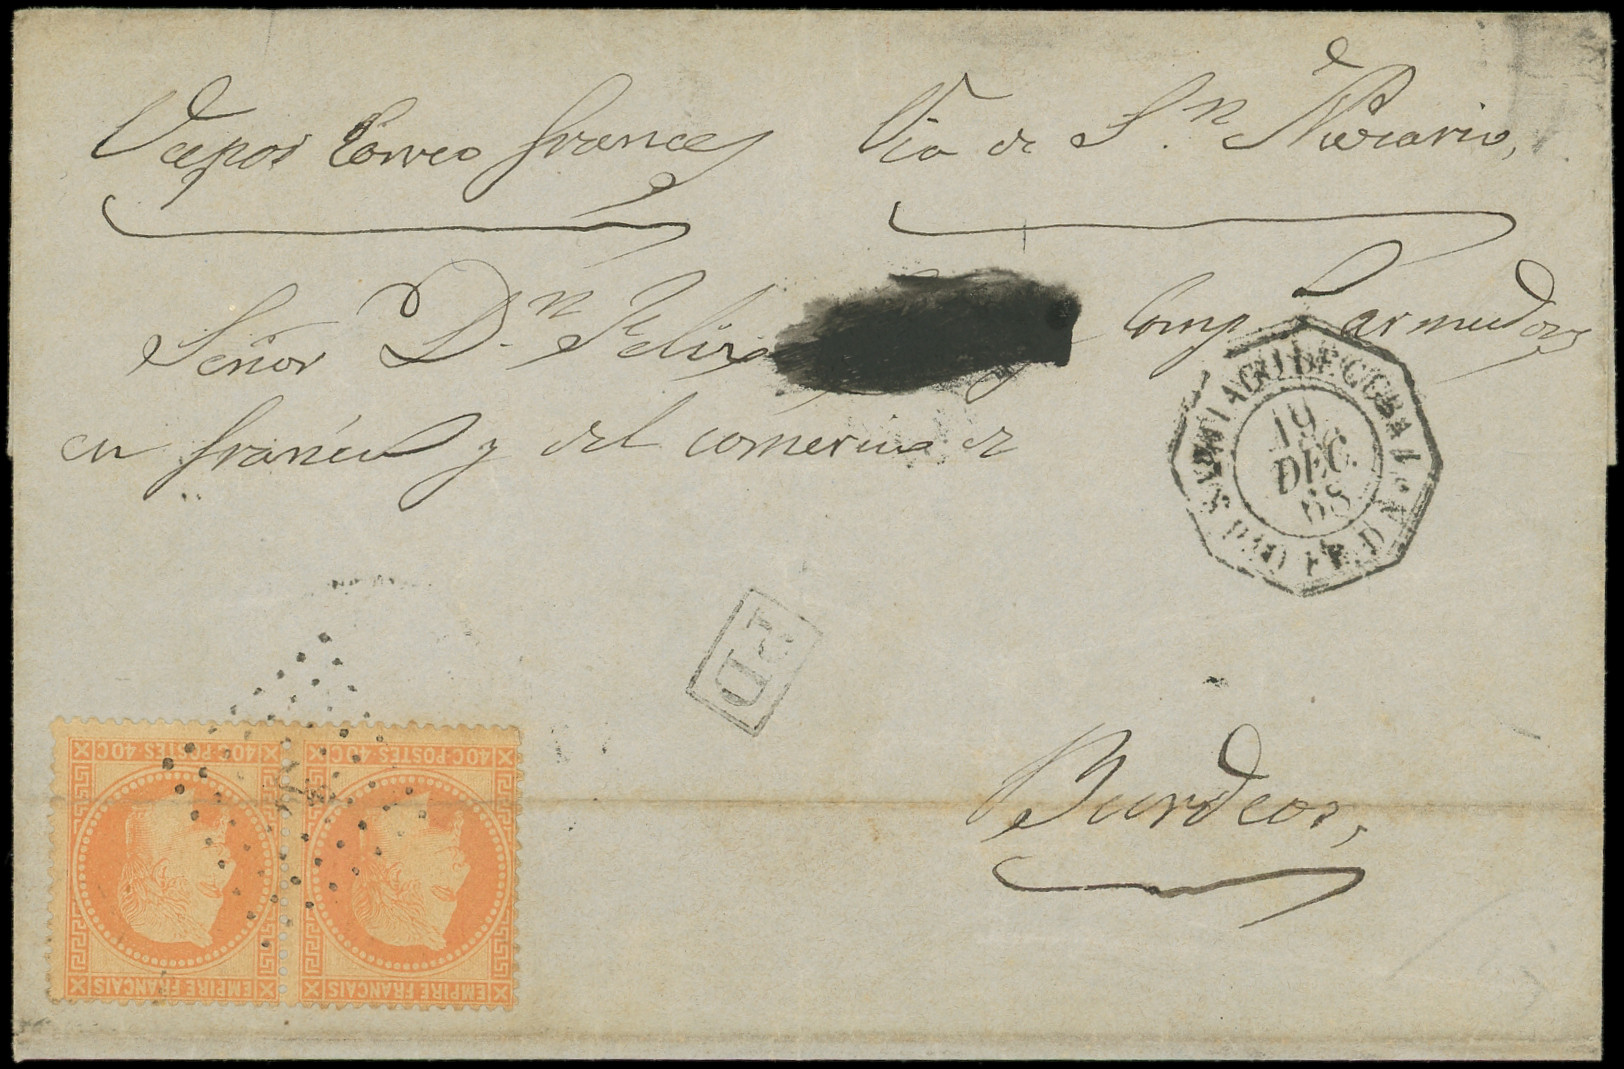 Vapor Correo frances Via de Sn. Nazario,
Señor Dn. Felix Comp. armador
en francia y del comercio de
SANTIAGO DE CUBA
19
DEC.
68
PD
Burdeos,
40C·POSTES·40C 40C·POSTES·40C
EMPIRE FRANÇAIS EMPIRE FRANÇAIS